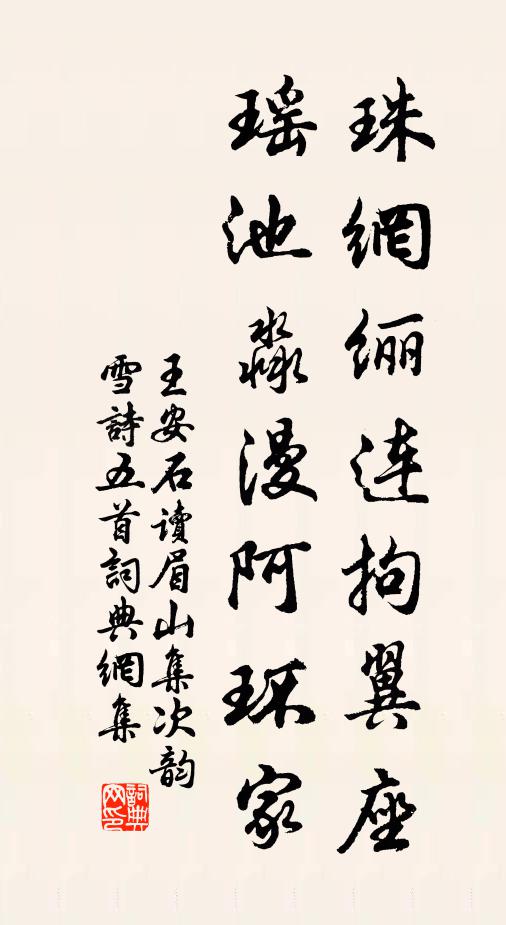 珠網纚連拘翼座
瑶池淼漫阿环家
王安石读眉山集次韵
雪詩五首詞典網集
詞典网印